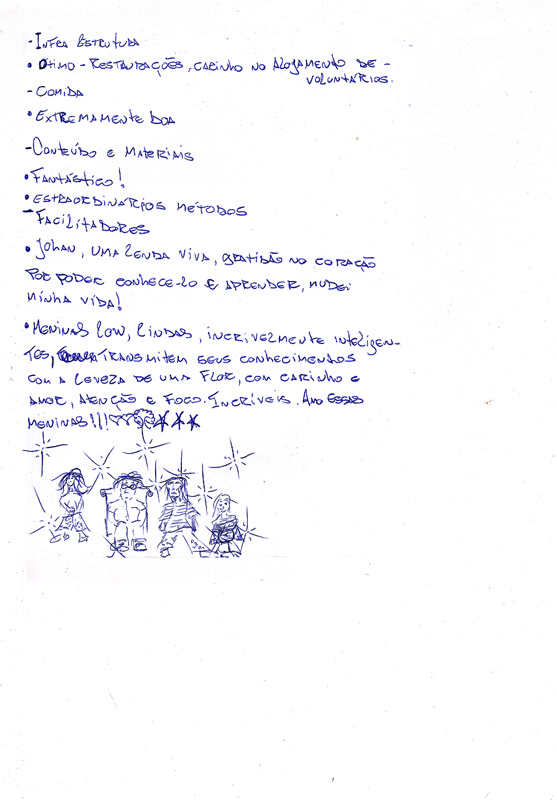 - INFRA ESTRUTURA
• ÓTIMO - RESTAURAÇÕES, CARINHO NO ALOJAMENTO DE -
VOLUNTÁRIOS.
- COMIDA
• EXTREMAMENTE BOA
- CONTEÚDO E MATERIAIS
• FANTÁSTICO!
• ESTRAORDINÁRIOS MÉTODOS
- FACILITADORES
• JOHAN, UMA LENDA VIVA, GRATIDÃO NO CORAÇÃO
POR PODER CONHECE-LO E APRENDER, MUDEI
MINHA VIDA!
• MENINAS LOW, LINDAS, INCRIVELMENTE INTELIGEN-
TES, TRANSMITEM SEUS CONHECIMENTOS
COM A LEVEZA DE UMA FLOR, COM CARINHO E
AMOR, ATENÇÃO E FOCO. INCRÍVEIS. AMO ESSAS
MENINAS!!!